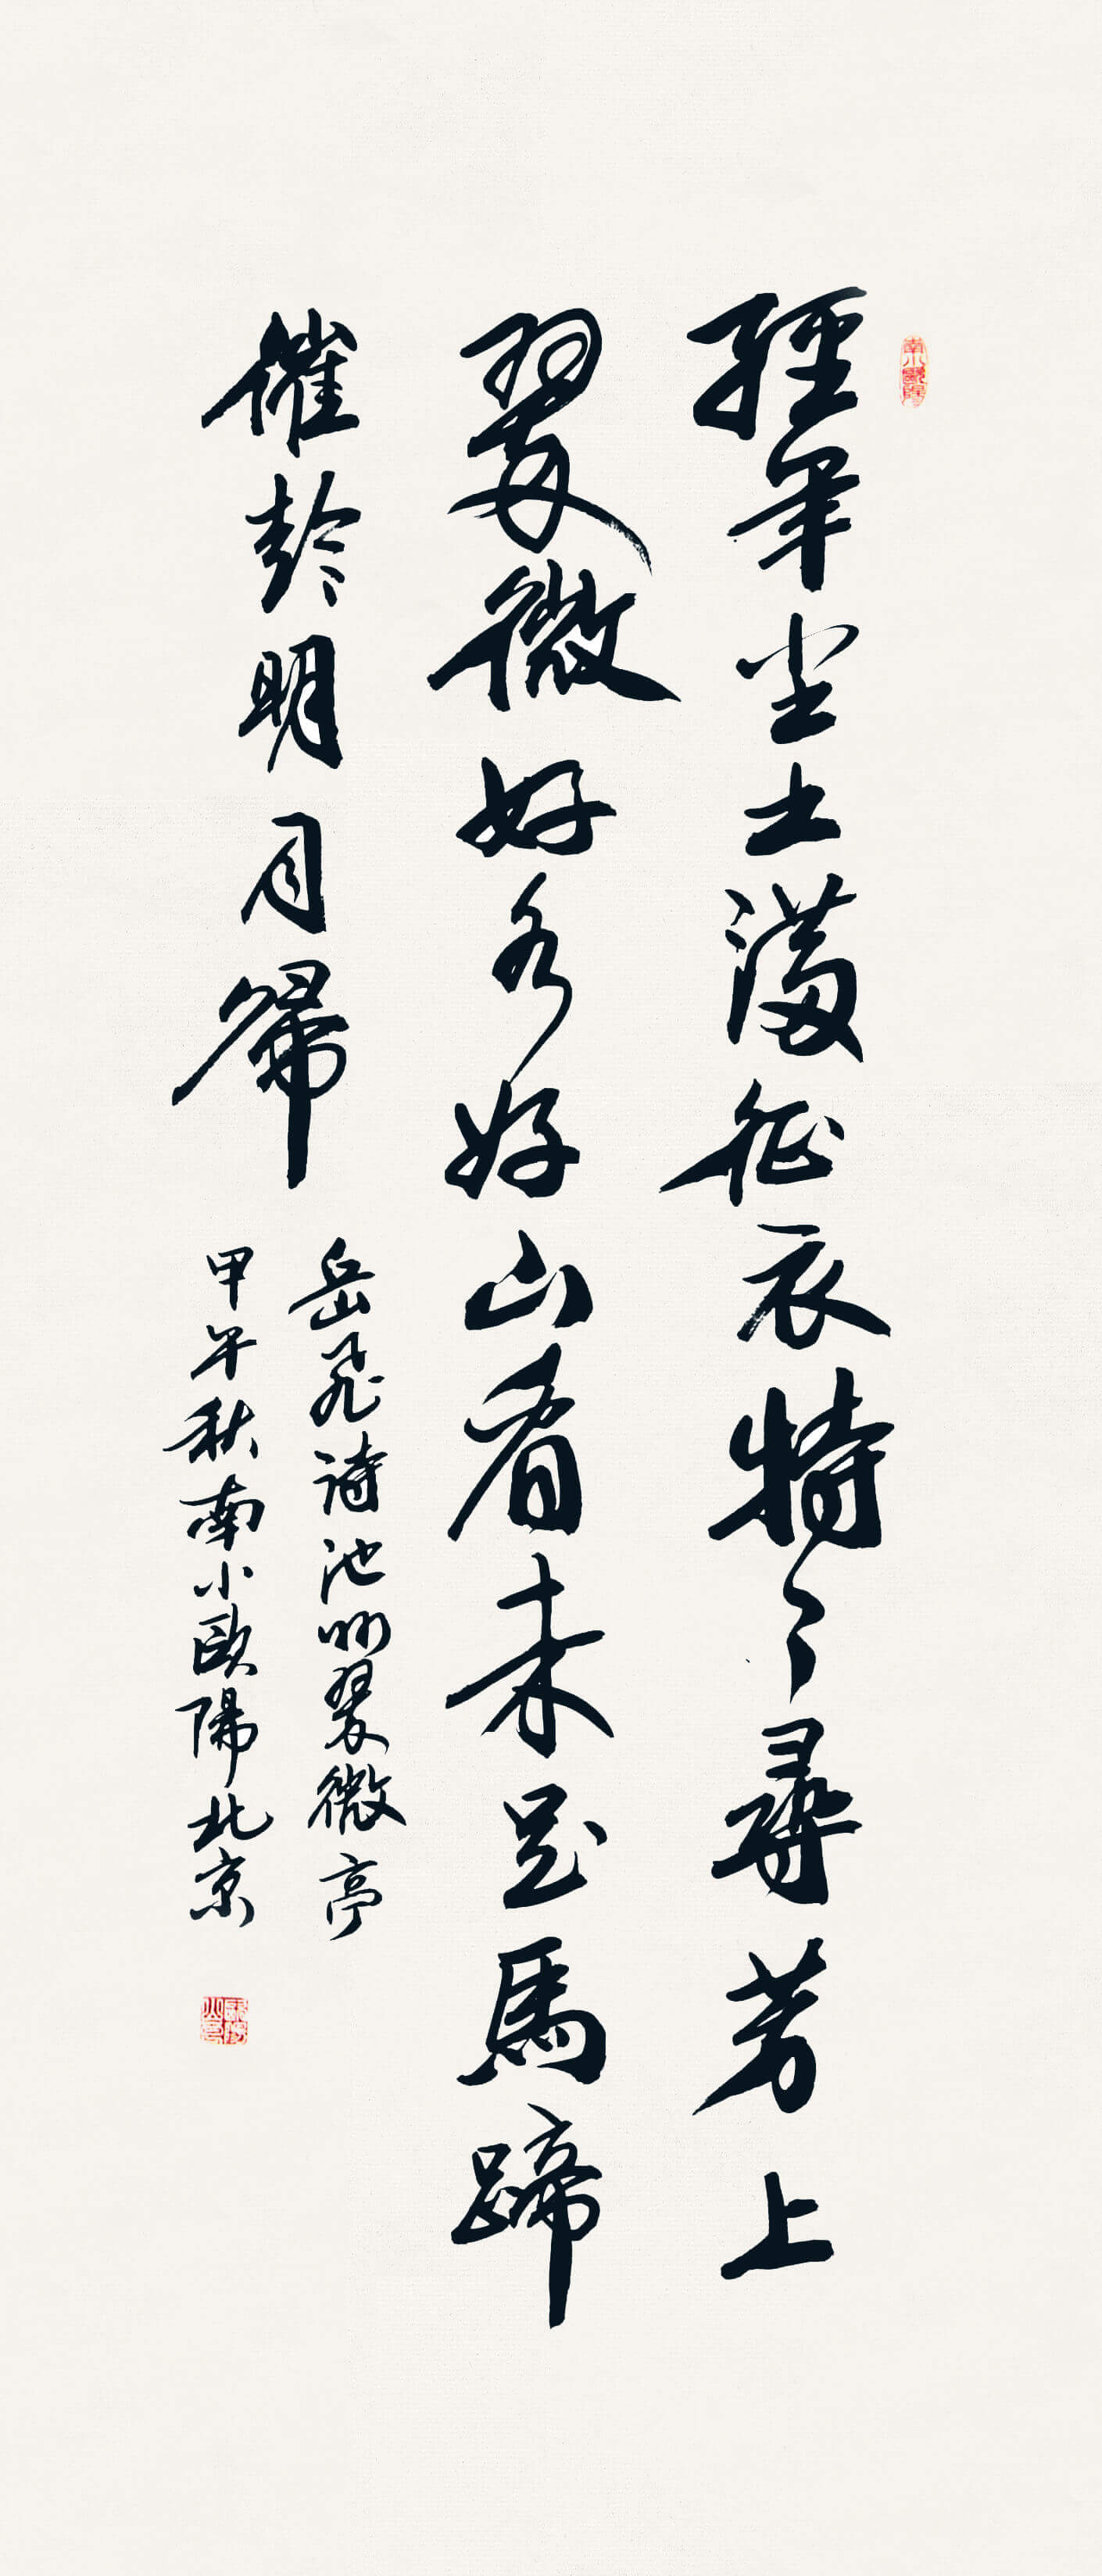 經年塵土滿征衣特々尋芳上
翠微好水好山看未足馬蹄
催趁明月歸
岳飛詩池州翠微亭
甲午秋南小歐陽北京
南小歐陽